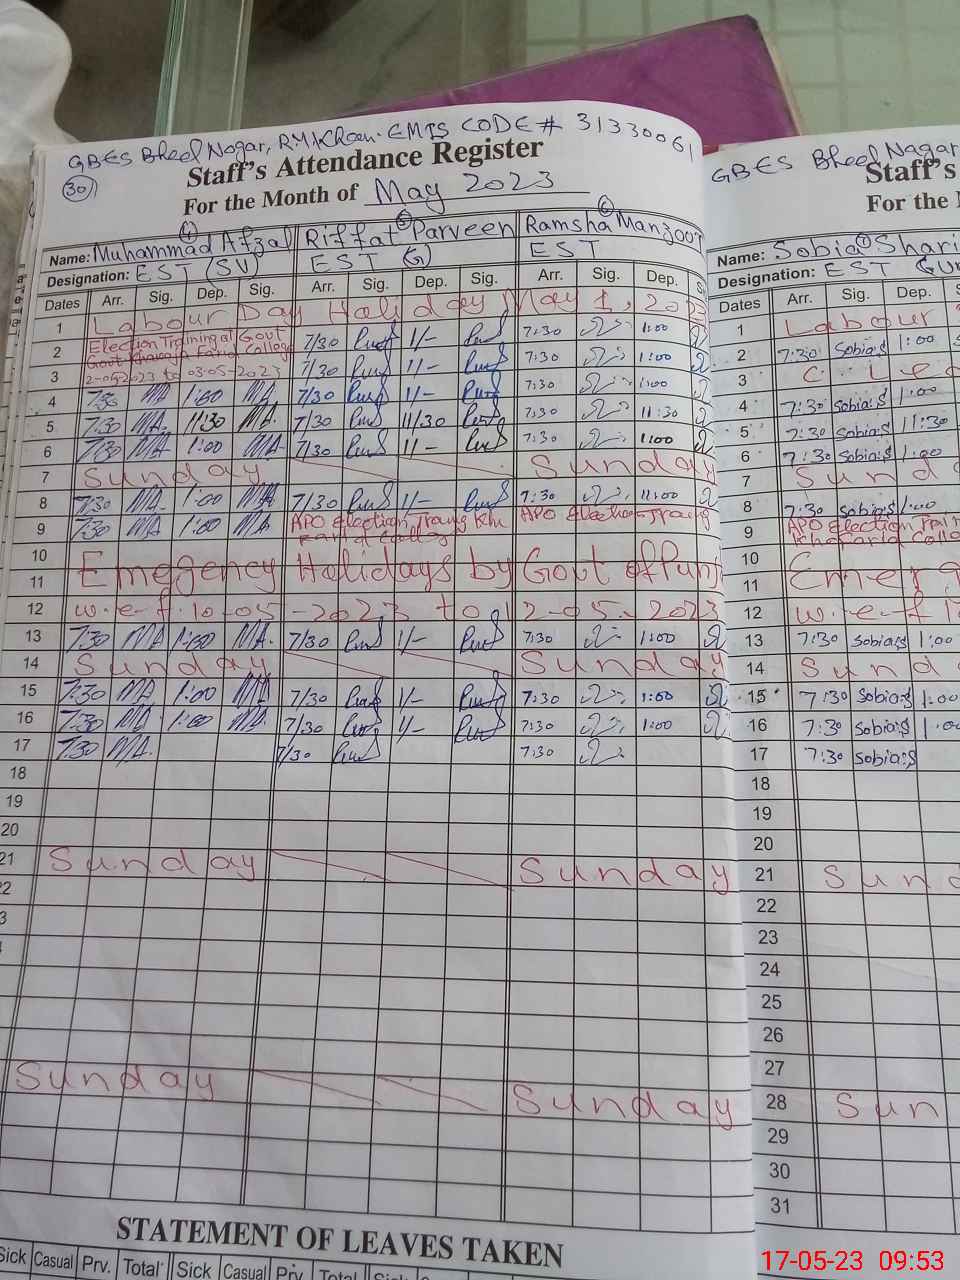 GBES Bheel Nagar, R.Y.Khan. EMIS CODE # 31330061
30
Staff's Attendance Register
For the Month of May 2023
4 5 6
Name: Muhammad Afzal Riffat Parveen Ramsha Manzoor
Designation: EST (SV) EST (G) EST
Dates Arr. Sig. Dep. Sig. Arr. Sig. Dep. Sig. Arr. Sig. Dep.
1 Labour Day Holiday May 1, 202
2 Election Training at Govt 7/30 1/- 7:30 1:00
Govt Khawaja Farid College
3 2-05-2023 to 03-05-2023 7/30 1/- 7:30 1:00
4 7:30 MA 1:00 MA 7/30 1/- 7:30 1:00
5 7:30 MA. 11:30 MA. 7/30 11/30 7:30 11:30
6 7:30 MA. 1:00 MA. 7/30 1/- 7:30 1:00
7 Sunday Sunday
8 7:30 MA 1:00 MA 7/30 1/- 7:30 11:00
9 7:30 MA. 1:00 MA. APO Election Khu APO Election
Farid College
10
11 Emegency Holidays by Govt of Punj
12 w.e.f 10-05-2023 to 12-05-2023
13 7:30 MA 1:00 MA. 7/30 1/- 7:30 1:00
14 Sunday Sunday
15 7:30 MA 1:00 MA 7/30 1/- 7:30 1:00
16 7:30 MA 1:00 MA 7/30 1/- 7:30 1:00
17 7:30 MA. 7/30 7:30
18
19
20
21 Sunday Sunday
22
3
Sunday Sunday
STATEMENT OF LEAVES TAKEN
Sick Casual Prv. Total Sick Casual Prv. Total Sick
GBES Bheel Nagar
Staff's
For the
7
Name: Sobia Shari
Designation: EST
Dates Arr. Sig. Dep.
1 Labour
2 7:30 Sobia:S 1:00
3 C. Lea
4 7:30 Sobia:S 1:00
5 7:30 Sobia:S 11:30
6 7:30 Sobia:S 1:00
7 Sund
8 7:30 Sobia:S 1:00
9 APO Election Train
Kh Farid Colle
10
11 Emerg
12 w.e.f 1
13 7:30 Sobia:S 1:00
14 Sund
15 7:30 Sobia:S 1:00
16 7:30 Sobia:S 1:00
17 7:30 Sobia:S
18
19
20
21 Sund
22
23
24
25
26
27
28 Sun
29
30
31
17-05-23 09:53